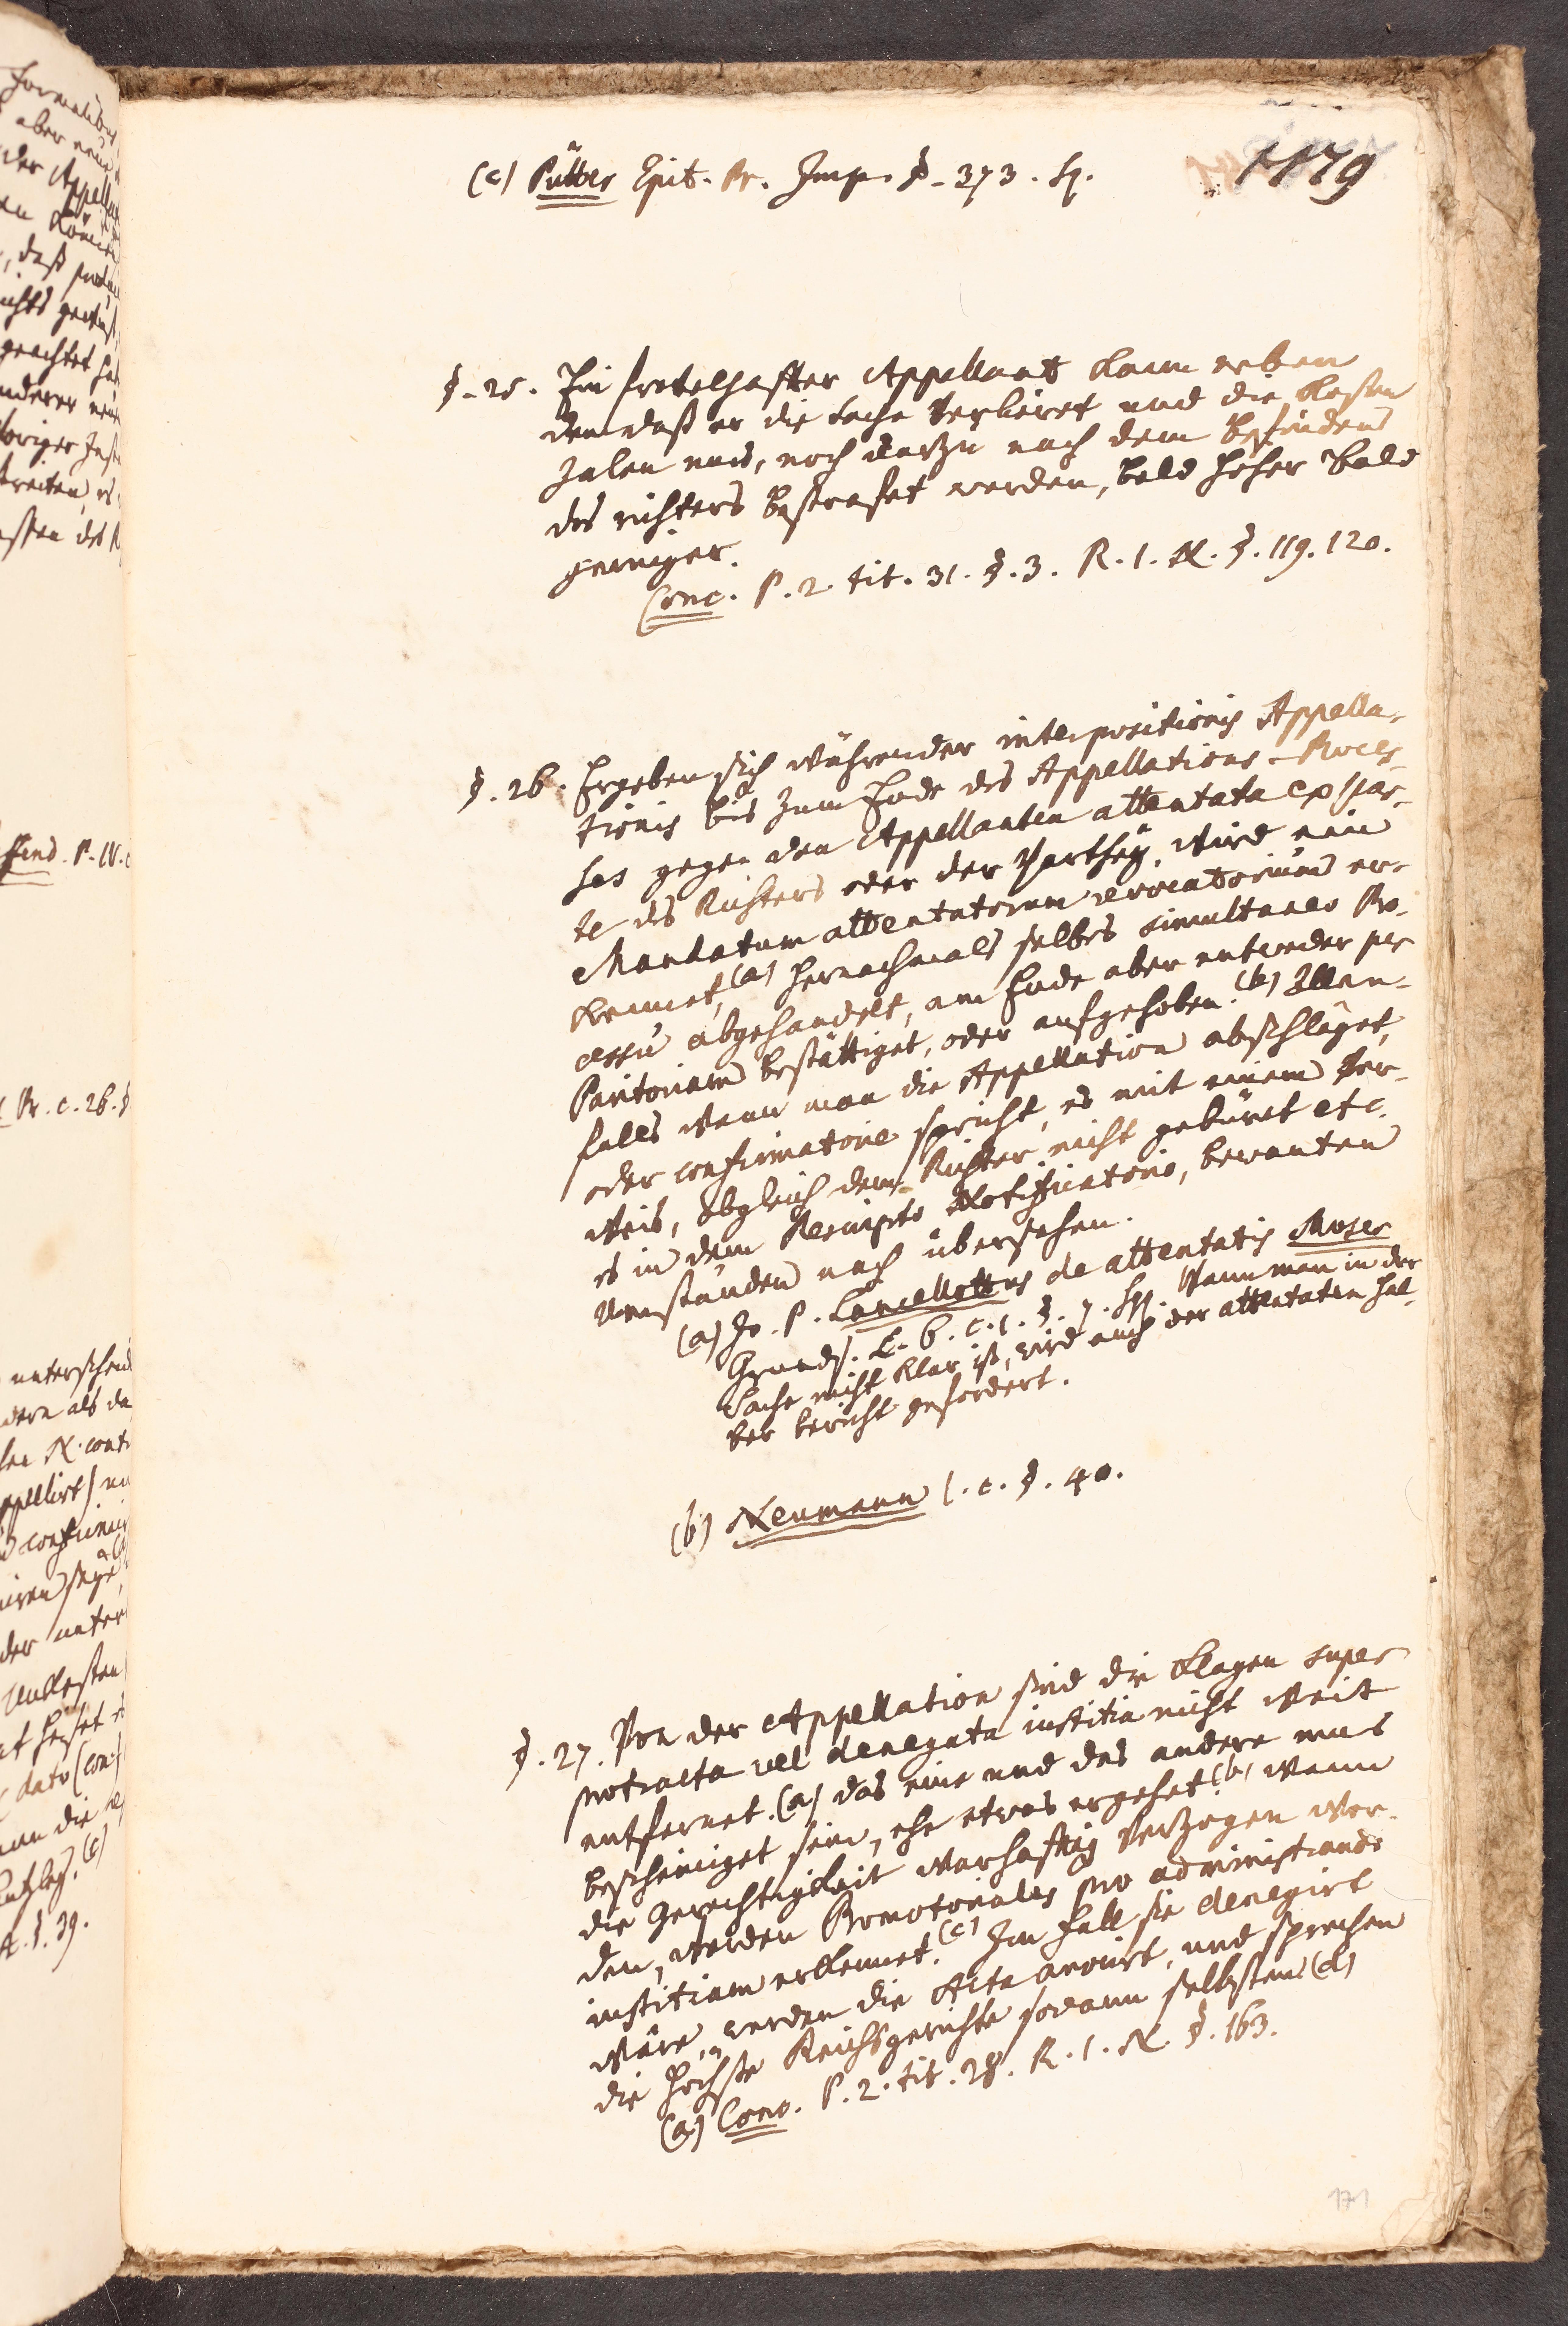 (c) Pütter Epit. Pr. Imp. §. 373. sq.
1179
§. 25. Ein frevelhafter Appellant kann neben
dem daß er die Sache verlieret und die Kosten
zalen mus, noch darzu nach dem Befinden
des richters bestrafet werden, bald höher bald
geringer.
Conc. P. 2. tit. 31. §. 3. R. I. N. §. 119. 120.
§. 26. Ergeben sich während der interpositionis Appella-
tionis bis zum Ende des Appellations-Proces-
ses gegen den Appellanten attentata ex par-
te des Richters oder der Parthey, wird ein
Mandatum attentatorum revocatorium er-
kennet, (a) hernachmals selbes simultaneo Pro-
cessu abgehandelt, am Ende aber entweder per
Paritoriam bestättiget, oder aufgehoben. (b) Allen-
falls wann man die Appellation abschläget,
oder confirmatorie spricht, es mit einem Ver-
weis, obgleich dem Richter nicht gebüret etc.
es in dem Rescripto Notificatorio, bewanten
Umständen nach übersehen.
(a) Jo. P. Lancellottus de attentatis Moser
Grunds. L. 6. c. 1. §. 7. sqq. Wann man in der
Sache nicht klar ist, wird auch der attentaten hal-
ber bericht gefordert.
(b) Neumann l. c. §. 40.
§. 27. Von der Appellation sind die Klagen super
protracta vel denegata iustitia nicht weit
entfernet. (a) das eine und das andere mus
bescheiniget sein, ehe etwas ergehet. (b) wann
die Gerechtigkeit warhaftig verzogen wor-
den, werden Promotoriales pro administranda
iustitiam erkennet. (c) Im Fall sie denegirt
wäre, werden die Acta avocirt, und sprechen
die höchste Reichsgerichte sodann selbsten. (d)
(a) Conc. P. 2. tit. 28. R. I. N. §. 163.
171